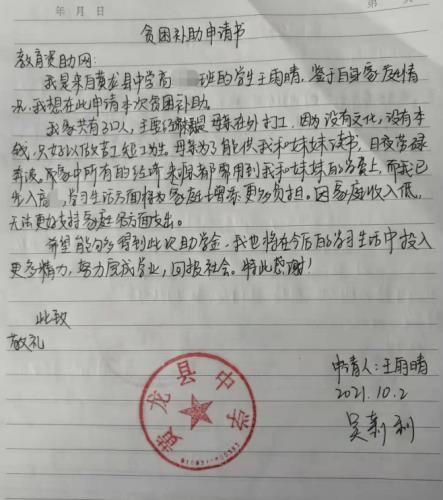 年 月 日
第 页
贫困补助申请书
教育资助网:
我是来自黄龙县中学高 班的学生王雨晴,鉴于自身家庭情
况,我想在此申请本次贫困补助。
我家共有口人,主要经济来源是母亲在外打工,因为没有文化,没有本
钱,只好以做苦工短工为生。母亲为了能供我和妹妹读书,日夜劳碌
奔波,家中所有的经济来源都要用到我和妹妹的学费上,而我已
步入高 ,学习生活方面将为家庭增添更多负担。因家庭收入低,
无法更好支持家庭各方面支出。
希望能够得到此次助学金,我也将在今后的学习生活中投入
更多精力,努力完成学业,回报社会。特此感谢!
此致
敬礼
申请人:王雨晴
2021.10.2
吴新利
黄龙县中学